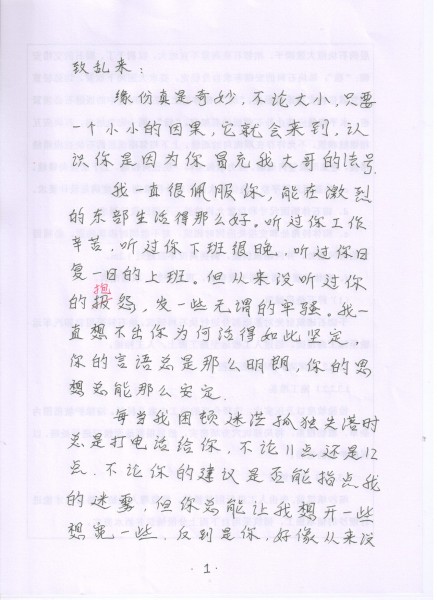 致乱来：
缘份真是奇妙，不论大小，只要
一个小小的因果，它就会来到，认
识你是因为你冒充我大哥的法号。
我一直很佩服你，能在激烈
的东部生活得那么好，听过你工作
辛苦，听过你下班很晚，听过你日
复一日的上班。但从来没听过你
抱
的报怨，发一些无谓的牢骚。我一
直想不出你为何活得如此坚定，
你的言语总是那么明朗，你的思
想总能那么安定。
每当我困顿迷茫孤独失落时
总是打电话给你，不论11点还是12
点。不论你的建议是否能指点我
的迷雾，但你总能让我想开一些
想宽一些。反到是你，好像从来没
·1·